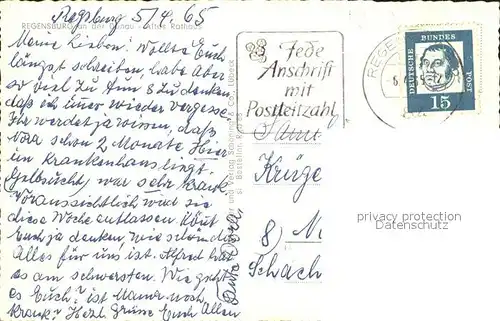 Regsburg 5/4. 65
REGENSBURG an der Donau - Altes Rathaus
Meine Lieben! Wollte Euch
längst schreiben, habe Aber
so viel zu Tun & zu denken,
daß ich immer wieder vergesse.
Ihr werdet ja wissen, daß
Dora schon 2 Monate Hier
im Krankenhaus liegt.
Gelbsucht, war sehr krank.
Voraussichtlich wird sie
diese Woche entlassen. Könnt
Euch ja denken, wie schön das
Alles für uns ist. Alfred hat
es am schwersten. Wie geht
es Euch? ist Mama noch
krank? Herzl. Grüsse Euch Allen
Tante Dora
Jede
Anschrift
mit
Postleitzahl
DEUTSCHE BUNDESPOST
15
Krüge
8)
Schach
privacy protection
Datenschutz